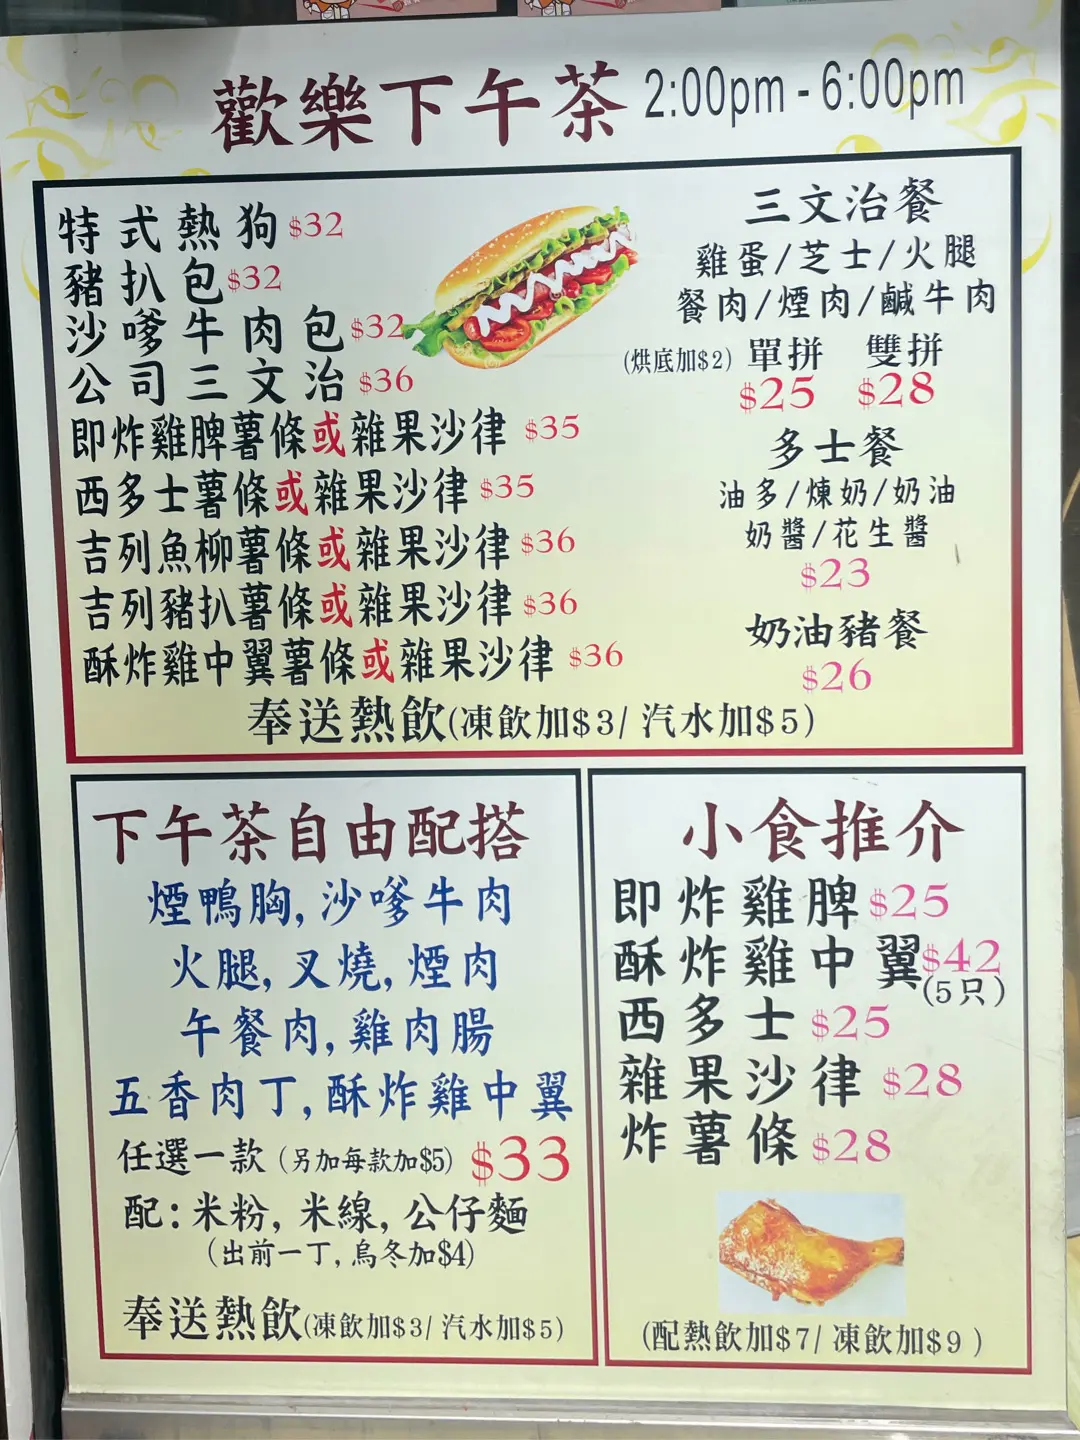 歡樂下午茶 2:00pm - 6:00pm
特式熱狗 $32
豬扒包 $32
沙嗲牛肉包 $32
公司三文治 $36
即炸雞脾薯條或雜果沙律 $35
西多士薯條或雜果沙律 $35
吉列魚柳薯條或雜果沙律 $36
吉列豬扒薯條或雜果沙律 $36
酥炸雞中翼薯條或雜果沙律 $36
三文治餐
雞蛋/芝士/火腿
餐肉/煙肉/鹹牛肉
(烘底加$2) 單拼 雙拼
$25 $28
多士餐
油多/煉奶/奶油
奶醬/花生醬
$23
奶油豬餐
$26
奉送熱飲(凍飲加$3/ 汽水加$5)
下午茶自由配搭
煙鴨胸, 沙嗲牛肉
火腿, 叉燒, 煙肉
午餐肉, 雞肉腸
五香肉丁, 酥炸雞中翼
任選一款 (另加每款加$5) $33
配: 米粉, 米線, 公仔麵
(出前一丁, 烏冬加$4)
奉送熱飲(凍飲加$3/ 汽水加$5)
小食推介
即炸雞脾 $25
酥炸雞中翼 $42
(5只)
西多士 $25
雜果沙律 $28
炸薯條 $28
(配熱飲加$7/ 凍飲加$9 )